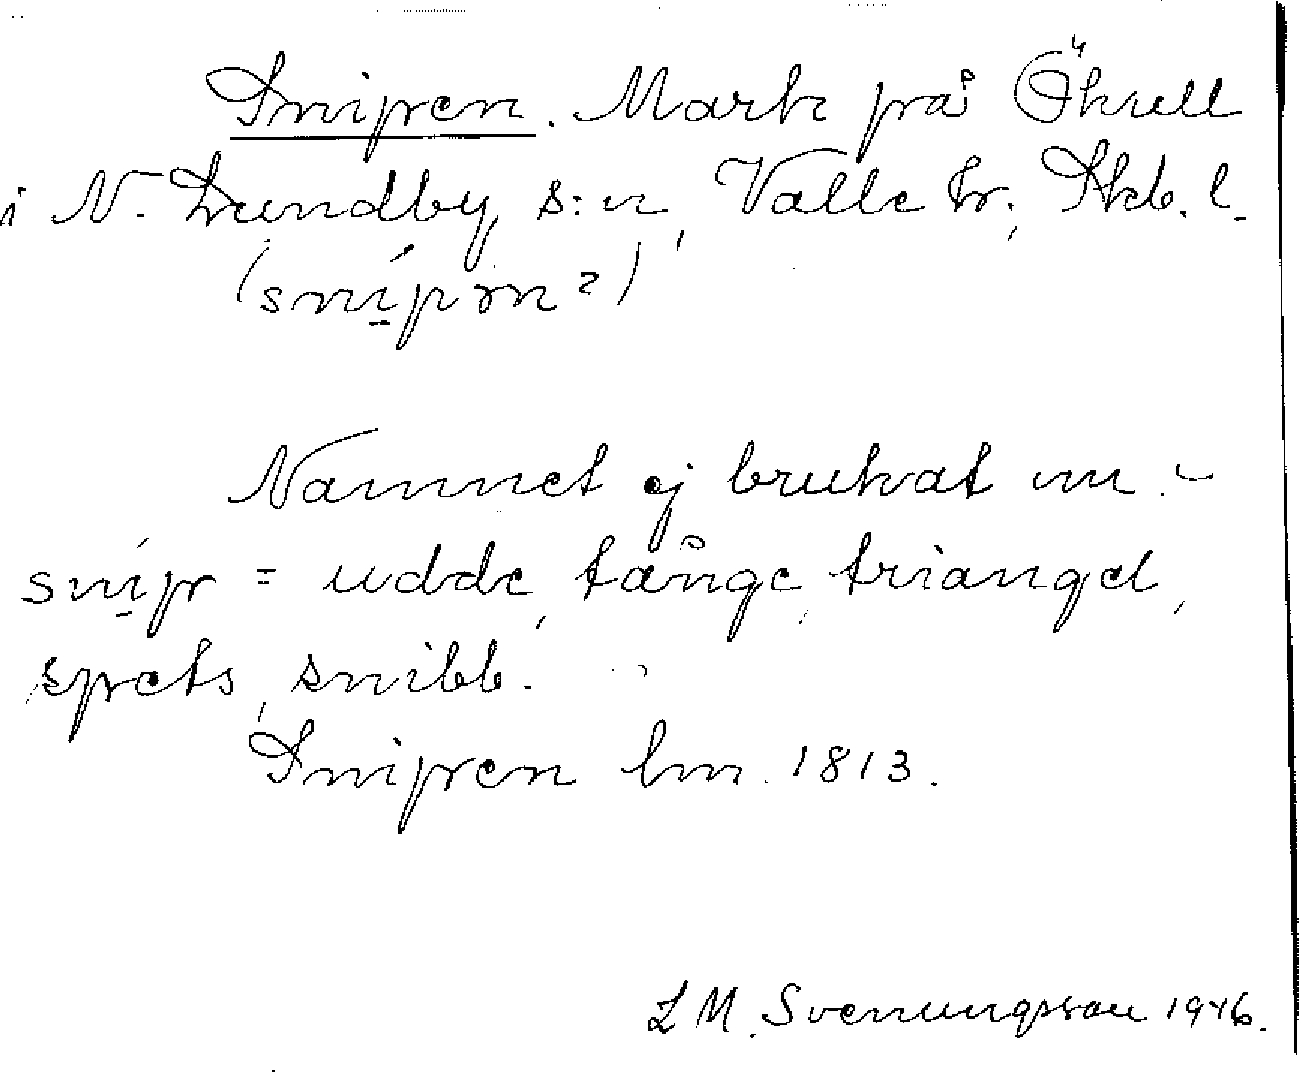 Snipen. Mark på Öknell
i N. Lundby s:n, Valle hr, Skb. l.
(snípən?)
Namnet ej brukat nu. -
sníp = udde, tånge, triangel,
spets, snibb.
Snipen lm. 1813.
L M. Svenungsson 1946.